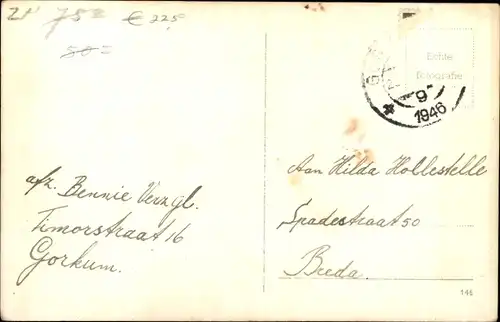 752 € 225
50=
Echte
fotografie
9
1946
afz. Bennie Verzgl.
Timorstraat 16
Gorkum.
Aan Hilda Hollestelle
Spadestraat 50
Breda.
146